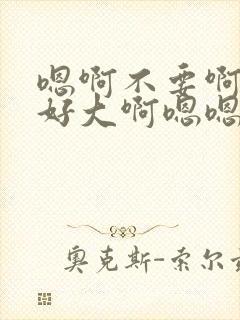 嗯啊不要啊
好大啊嗯嗯
奥克斯-索尔